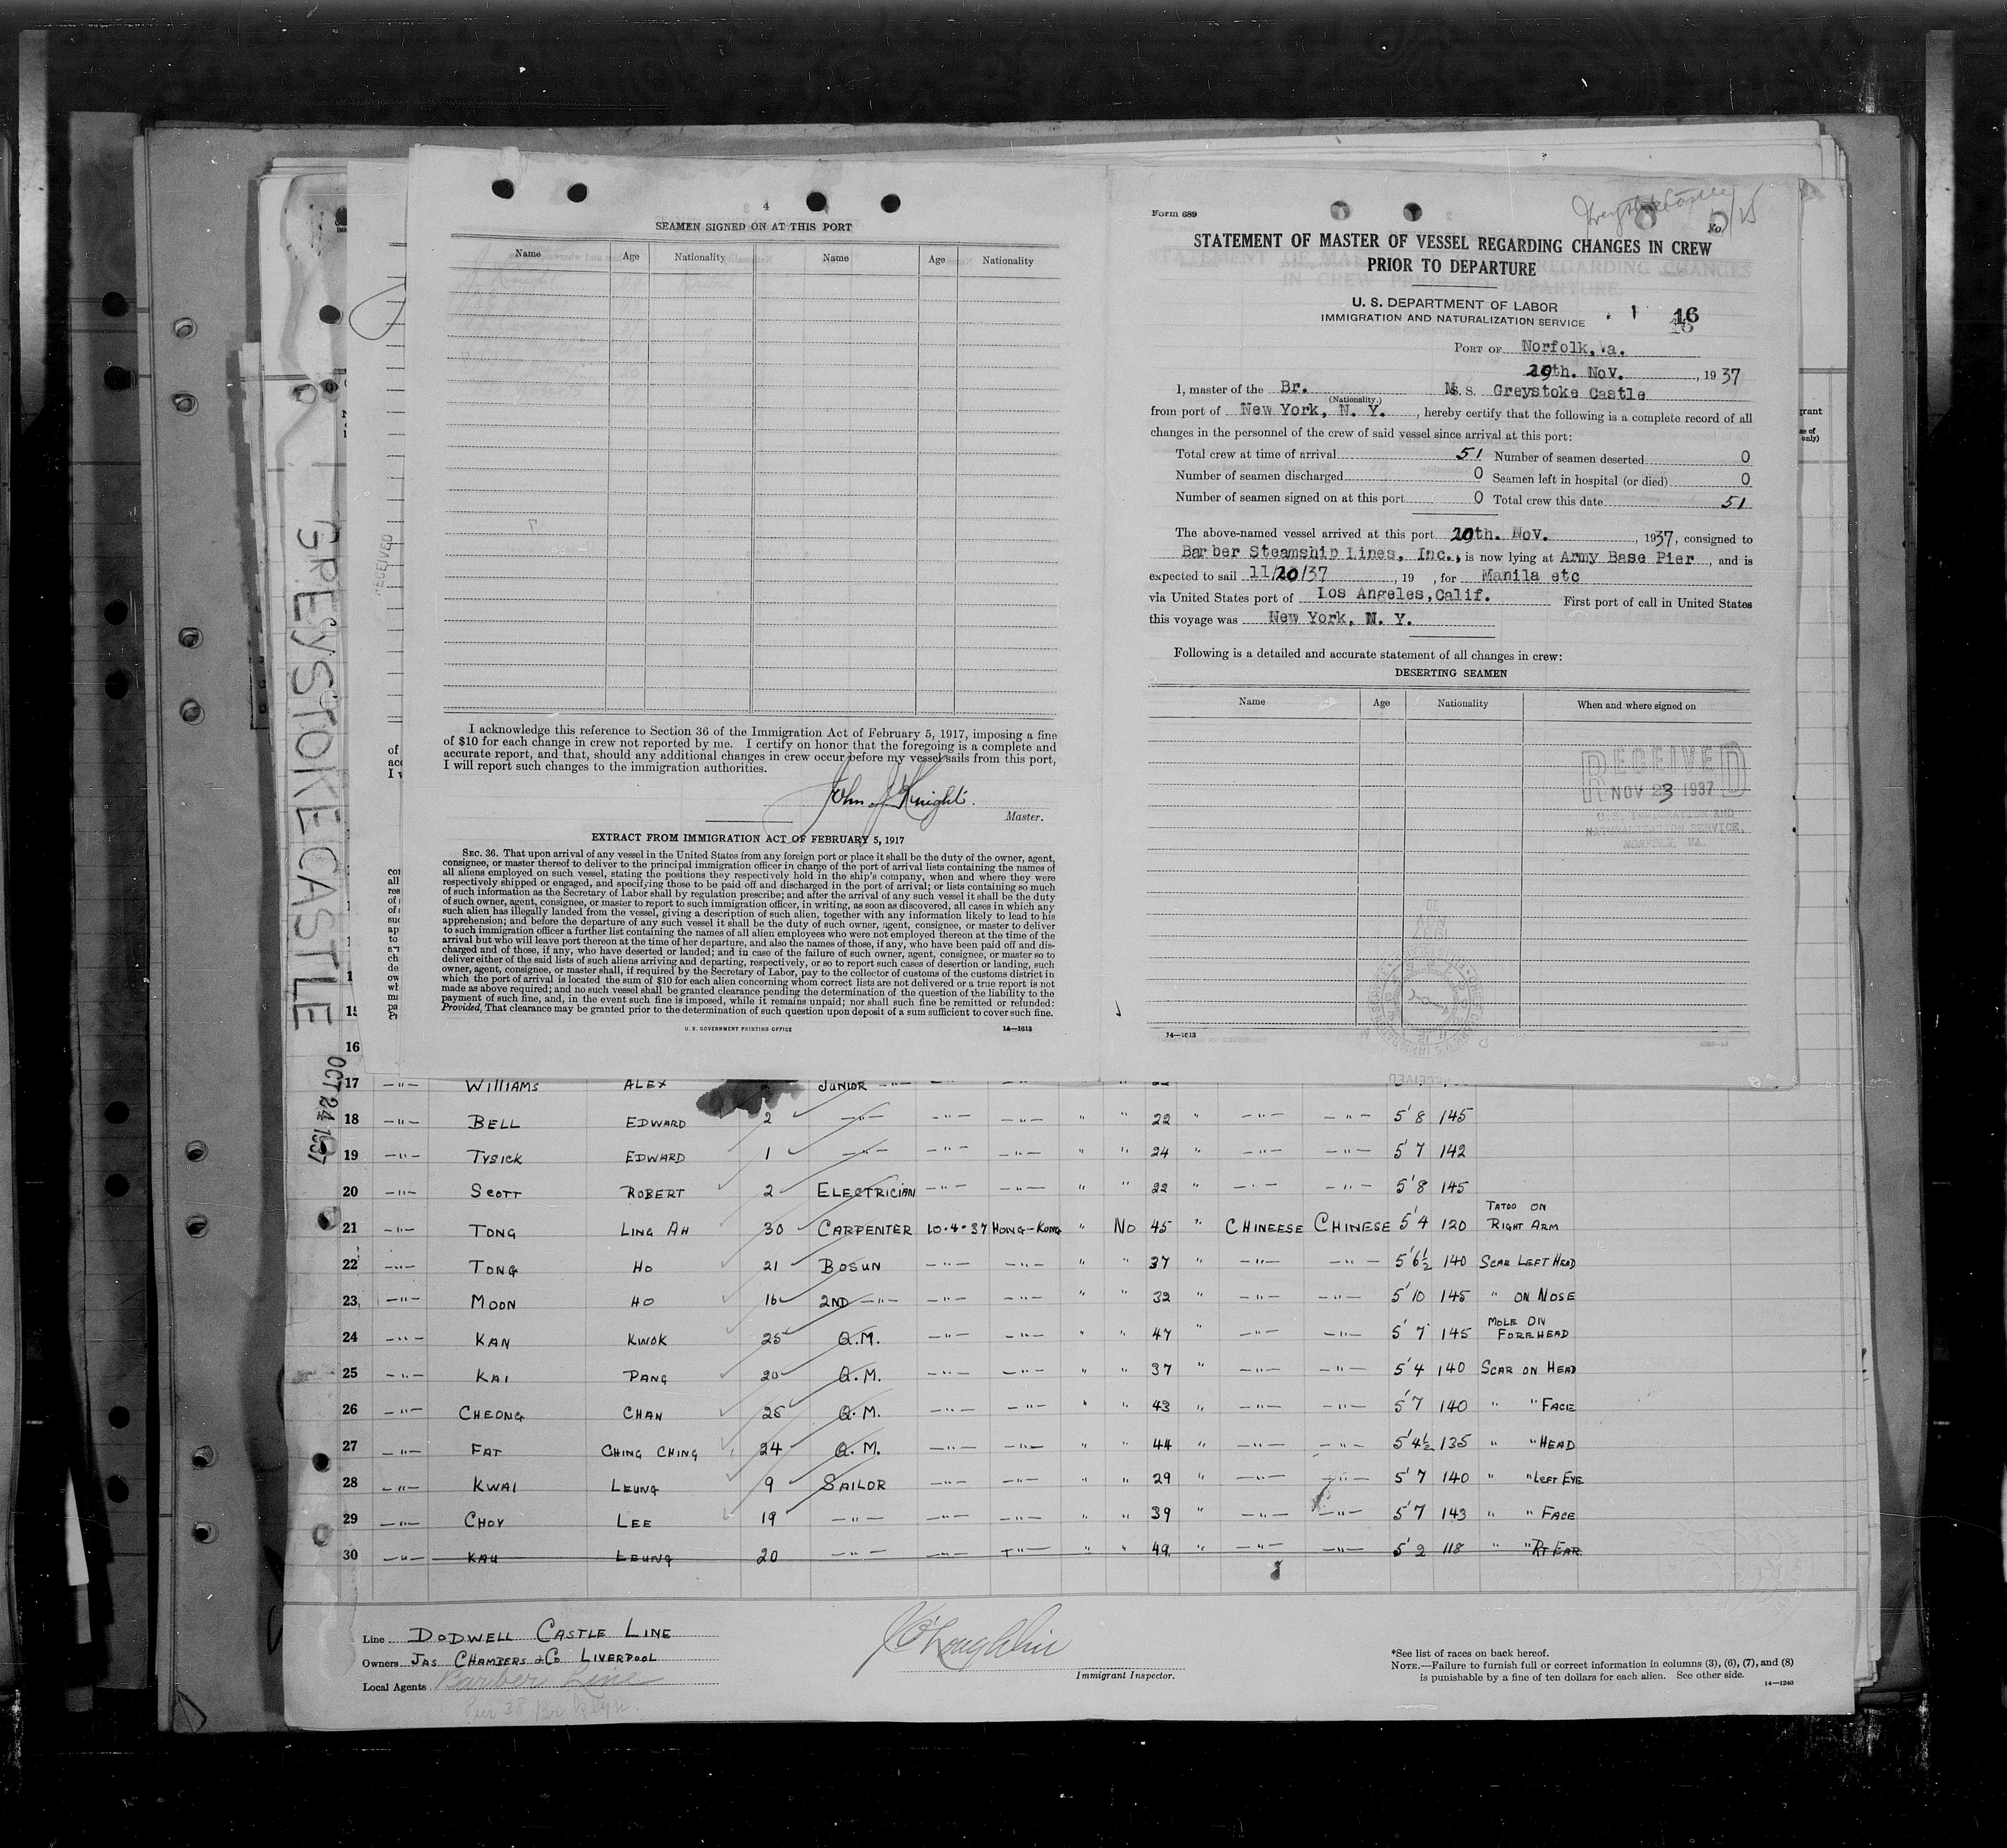 4
SEAMEN SIGNED ON AT THIS PORT
Name Age Nationality Name Age Nationality
I acknowledge this reference to Section 36 of the Immigration Act of February 5, 1917, imposing a fine
of $10 for each change in crew not reported by me. I certify on honor that the foregoing is a complete and
accurate report, and that, should any additional changes in crew occur before my vessel sails from this port,
I will report such changes to the immigration authorities.
John J Knight.
Master.
EXTRACT FROM IMMIGRATION ACT OF FEBRUARY 5, 1917
SEC. 36. That upon arrival of any vessel in the United States from any foreign port or place it shall be the duty of the owner, agent,
consignee, or master thereof to deliver to the principal immigration officer in charge of the port of arrival lists containing the names of
all aliens employed on such vessel, stating the positions they respectively hold in the ship's company, when and where they were
respectively shipped or engaged, and specifying those to be paid off and discharged in the port of arrival; or lists containing so much
of such information as the Secretary of Labor shall by regulation prescribe; and after the arrival of any such vessel it shall be the duty
of such owner, agent, consignee, or master to report to such immigration officer, in writing, as soon as discovered, all cases in which any
such alien has illegally landed from the vessel, giving a description of such alien, together with any information likely to lead to his
apprehension; and before the departure of any such vessel it shall be the duty of such owner, agent, consignee, or master to deliver
to such immigration officer a further list containing the names of all alien employees who were not employed thereon at the time of the
arrival but who will leave port thereon at the time of her departure, and also the names of those, if any, who have been paid off and dis-
charged and of those, if any, who have deserted or landed; and in case of the failure of such owner, agent, consignee, or master so to
deliver either of the said lists of such aliens arriving and departing, respectively, or so to report such cases of desertion or landing, such
owner, agent, consignee, or master shall, if required by the Secretary of Labor, pay to the collector of customs of the customs district in
which the port of arrival is located the sum of $10 for each alien concerning whom correct lists are not delivered or a true report is not
made as above required; and no such vessel shall be granted clearance pending the determination of the question of the liability to the
payment of such fine, and, in the event such fine is imposed, while it remains unpaid; nor shall such fine be remitted or refunded:
Provided, That clearance may be granted prior to the determination of such question upon deposit of a sum sufficient to cover such fine.
U. S. GOVERNMENT PRINTING OFFICE 14—1613
Form 689
No.
STATEMENT OF MASTER OF VESSEL REGARDING CHANGES IN CREW
PRIOR TO DEPARTURE
U. S. DEPARTMENT OF LABOR
IMMIGRATION AND NATURALIZATION SERVICE
16
PORT OF Norfolk, Va.
20th. Nov., 1937
I, master of the Br. M. S. Greystoke Castle
(Nationality)
from port of New York, N. Y., hereby certify that the following is a complete record of all
changes in the personnel of the crew of said vessel since arrival at this port:
Total crew at time of arrival 51 Number of seamen deserted 0
Number of seamen discharged 0 Seamen left in hospital (or died) 0
Number of seamen signed on at this port 0 Total crew this date 51
The above-named vessel arrived at this port 20th. Nov., 1937, consigned to
Barber Steamship Lines, Inc., is now lying at Army Base Pier, and is
expected to sail 11/20/37, 19 , for Manila etc
via United States port of Los Angeles, Calif. First port of call in United States
this voyage was New York, N. Y.
Following is a detailed and accurate statement of all changes in crew:
DESERTING SEAMEN
Name Age Nationality When and where signed on
RECEIVED
NOV 23 1937
U.S. IMMIGRATION AND
NATURALIZATION SERVICE.
NORFOLK VA.
14—1613
GREYSTOKE CASTLE
OCT 24 1937
RECEIVED
16
17 —"— WILLIAMS ALEX JUNIOR —"— —"— —"— " " 22
18 —"— BELL EDWARD 2 —"— —"— —"— " " 22 " —"— —"— 5'8 145
19 —"— TYSICK EDWARD 1 —"— —"— —"— " " 24 " —"— —"— 5'7 142
20 —"— SCOTT ROBERT 2 ELECTRICIAN —"— —"— " " 22 " —"— —"— 5'8 145
21 —"— TONG LING AH 30 CARPENTER 10.4.37 HONG-KONG " NO 45 " CHINEESE CHINESE 5'4 120 TATOO ON RIGHT ARM
22 —"— TONG HO 21 BOSUN —"— —"— " " 37 " —"— —"— 5'6½ 140 SCAR LEFT HEAD
23 —"— MOON HO 16 2ND —"— —"— —"— " " 32 " —"— —"— 5'10 145 " ON NOSE
24 —"— KAN KWOK 25 Q.M. —"— —"— " " 47 " —"— —"— 5'7 145 MOLE ON FOREHEAD
25 —"— KAI PANG 20 Q.M. —"— —"— " " 37 " —"— —"— 5'4 140 SCAR ON HEAD
26 —"— CHEONG CHAN 25 Q.M. —"— —"— " " 43 " —"— —"— 5'7 140 " " FACE
27 —"— FAT CHING CHING 24 Q.M. —"— —"— " " 44 " —"— —"— 5'4½ 135 " " HEAD
28 —"— KWAI LEUNG 9 SAILOR —"— —"— " " 29 " —"— —"— 5'7 140 " " LEFT EYE
29 —"— CHOY LEE 19 —"— —"— —"— " " 39 " —"— —"— 5'7 143 " " FACE
30 —"— KAU LEUNG 20 —"— —"— —"— " " 49 " —"— —"— 5'2 118 " " RT EAR
Line DODWELL CASTLE LINE
Owners JAS CHAMBERS & CO LIVERPOOL
Local Agents Barber Line
Pier 38 Brooklyn.
Immigrant Inspector.
*See list of races on back hereof.
NOTE.—Failure to furnish full or correct information in columns (3), (6), (7), and (8)
is punishable by a fine of ten dollars for each alien. See other side.
14—1240